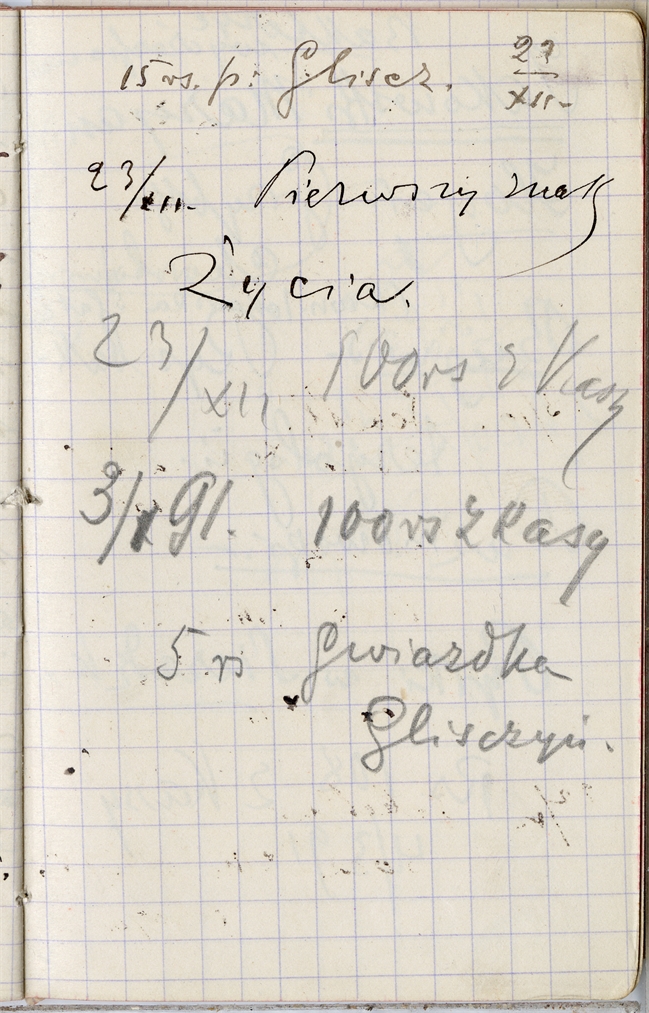 15 rs. p. Gliscz. 23/XII.
23/XII. Pierwszy znak
Życia.
23/XII 100 rs z Kasy
3/I 91. 100 rs z Kasy
5 rs Gwiazdka
Gliszczyń.